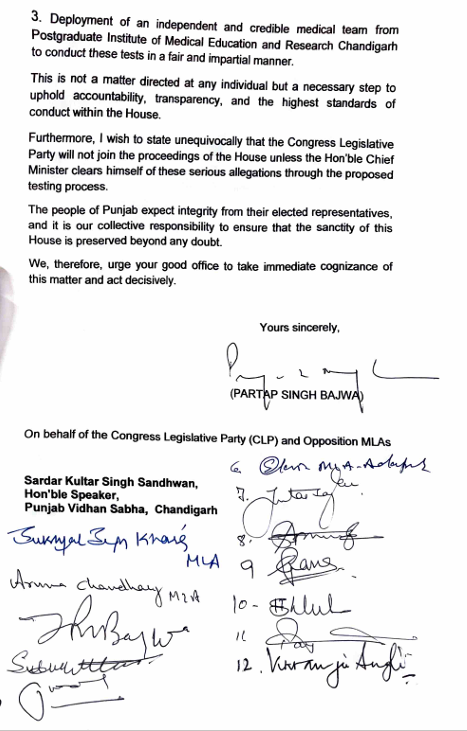 3. Deployment of an independent and credible medical team from
Postgraduate Institute of Medical Education and Research Chandigarh
to conduct these tests in a fair and impartial manner.
This is not a matter directed at any individual but a necessary step to
uphold accountability, transparency, and the highest standards of
conduct within the House.
Furthermore, I wish to state unequivocally that the Congress Legislative
Party will not join the proceedings of the House unless the Hon'ble Chief
Minister clears himself of these serious allegations through the proposed
testing process.
The people of Punjab expect integrity from their elected representatives,
and it is our collective responsibility to ensure that the sanctity of this
House is preserved beyond any doubt.
We, therefore, urge your good office to take immediate cognizance of
this matter and act decisively.
Yours sincerely,
(PARTAP SINGH BAJWA)
On behalf of the Congress Legislative Party (CLP) and Opposition MLAs
Sardar Kultar Singh Sandhwan,
Hon'ble Speaker,
Punjab Vidhan Sabha, Chandigarh
MLA
Aruna Chaudhary MLA
Bajwa
6.
7.
8.
9
10-
11
12.